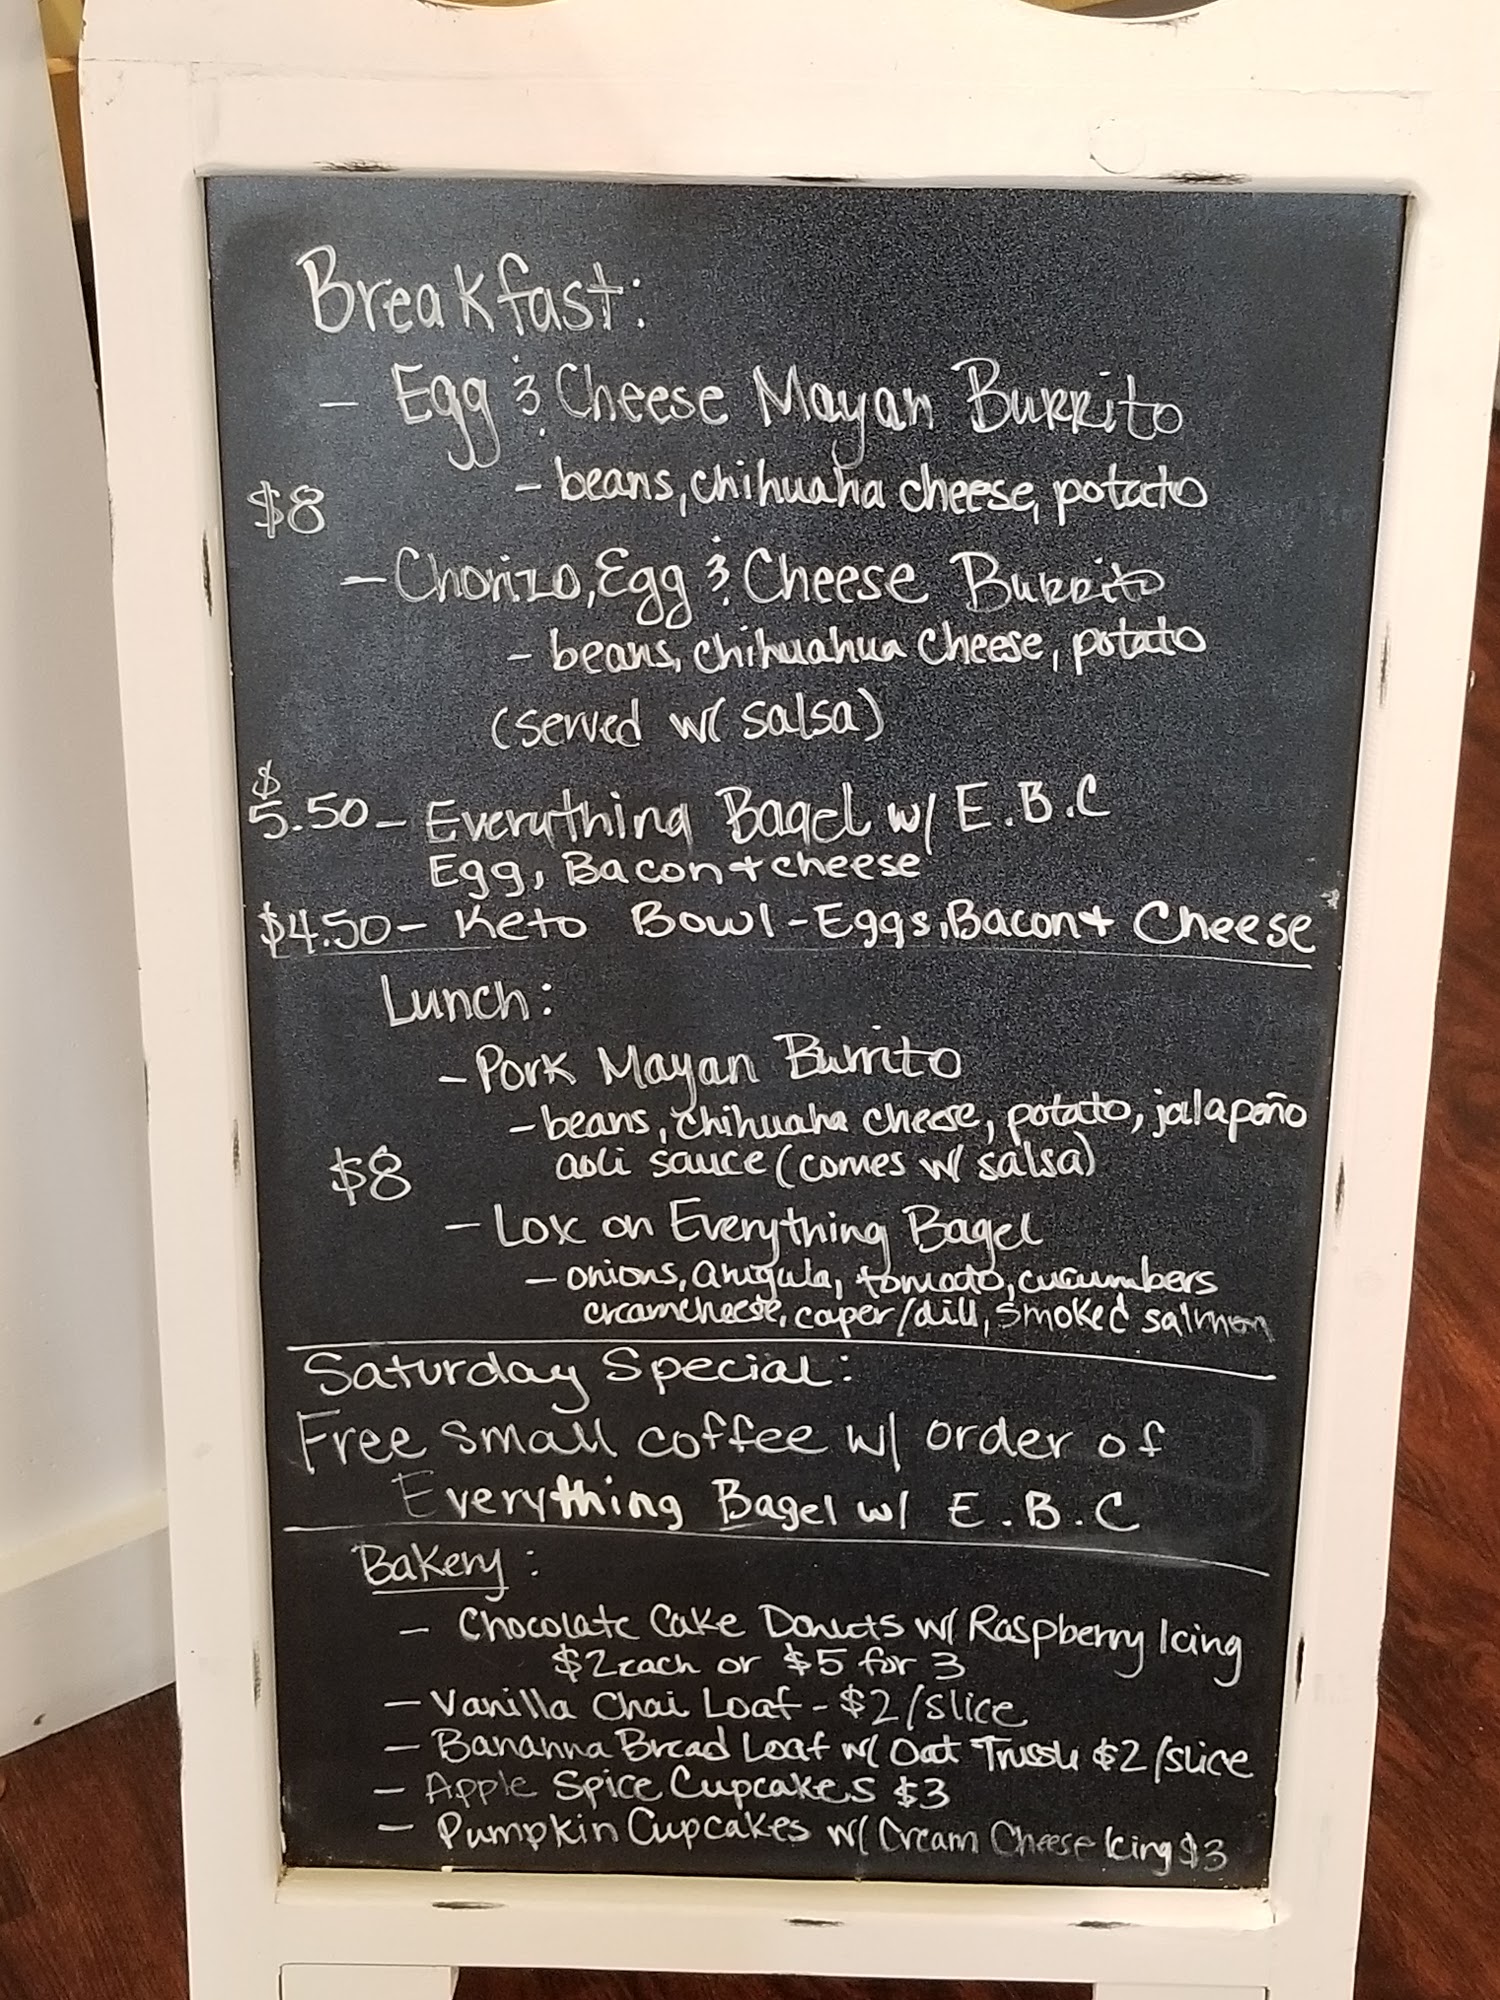 Breakfast:
- Egg & Cheese Mayan Burrito
- beans, chihuaha cheese, potato
$8
- Chorizo, Egg & Cheese Burrito
- beans, chihuahua cheese, potato
(served w/ salsa)
$5.50 - Everything Bagel w/ E.B.C
Egg, Bacon + cheese
$4.50 - Keto Bowl - Eggs, Bacon + Cheese
Lunch:
- Pork Mayan Burrito
- beans, chihuaha cheese, potato, jalapeño
$8 aoli sauce (comes w/ salsa)
- Lox on Everything Bagel
- onions, arugula, tomato, cucumbers
creamcheese, caper/dill, smoked salmon
Saturday Special:
Free small coffee w/ order of
Everything Bagel w/ E.B.C
Bakery:
- Chocolate Cake Donuts w/ Raspberry Icing
$2 each or $5 for 3
- Vanilla Chai Loaf - $2/slice
- Bananna Bread Loaf w/ Oat $2/slice
- Apple Spice Cupcakes $3
- Pumpkin Cupcakes w/ Cream Cheese Icing $3